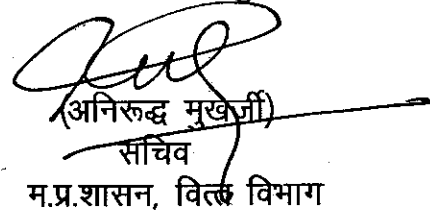 (अनिरूद्ध मुखर्जी)
सचिव
म.प्र.शासन, वित्त विभाग